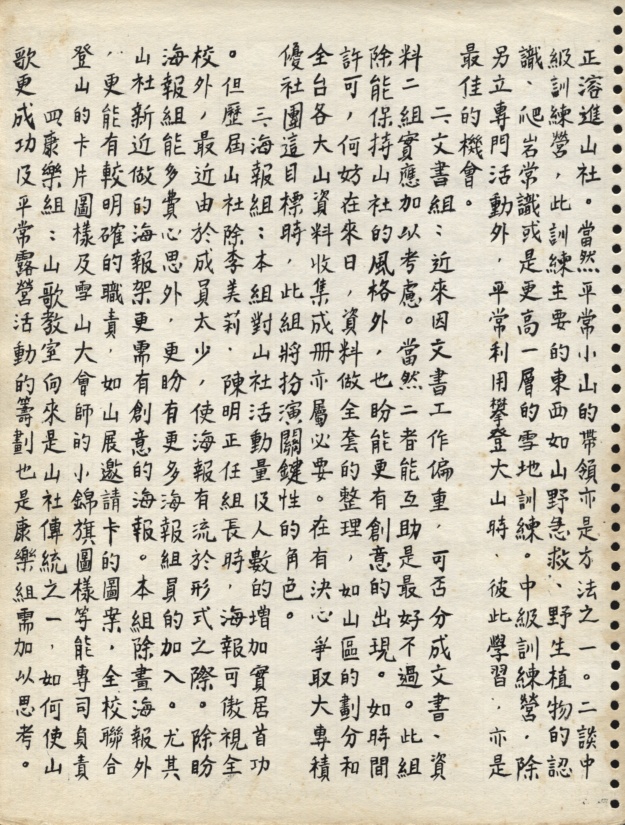 正溶進山社。當然平常小山的帶領亦是方法之一。二談中
級訓練營，此訓練主要的東西如山野急救、野生植物的認
識、爬岩常識或是更高一層的雪地訓練。中級訓練營，除
另立專門活動外，平常利用攀登大山時、彼此學習，亦是
最佳的機會。
二文書組：近來因文書工作偏重，可否分成文書、資
料二組實應加以考慮。當然二者能互助是最好不過。此組
除能保持山社的風格外，也盼能更有創意的出現。如時間
許可，何妨在來日，資料做全套的整理，如山區的劃分和
全台各大山資料收集成册亦屬必要。在有決心爭取大專積
優社團這目標時，此組將扮演關鍵性的角色。
三海報組：本組對山社活動量及人數的增加實居首功
。但歷屆山社除李美莉、陳明正任組長時，海報可傲視全
校外，最近由於成員太少，使海報有流於形式之際。除盼
海報組能多費心思外，更盼有更多海報組員的加入。尤其
山社新近做的海報架更需有創意的海報。本組除畫海報外
，更能有較明確的職責，如山展邀請卡的圖案，全校聯合
登山的卡片圖樣及雪山大會師的小錦旗圖樣等能專司負責
四康樂組：山歌教室向來是山社傳統之一，如何使山
歌更成功及平常露營活動的籌劃也是康樂組需加以思考。